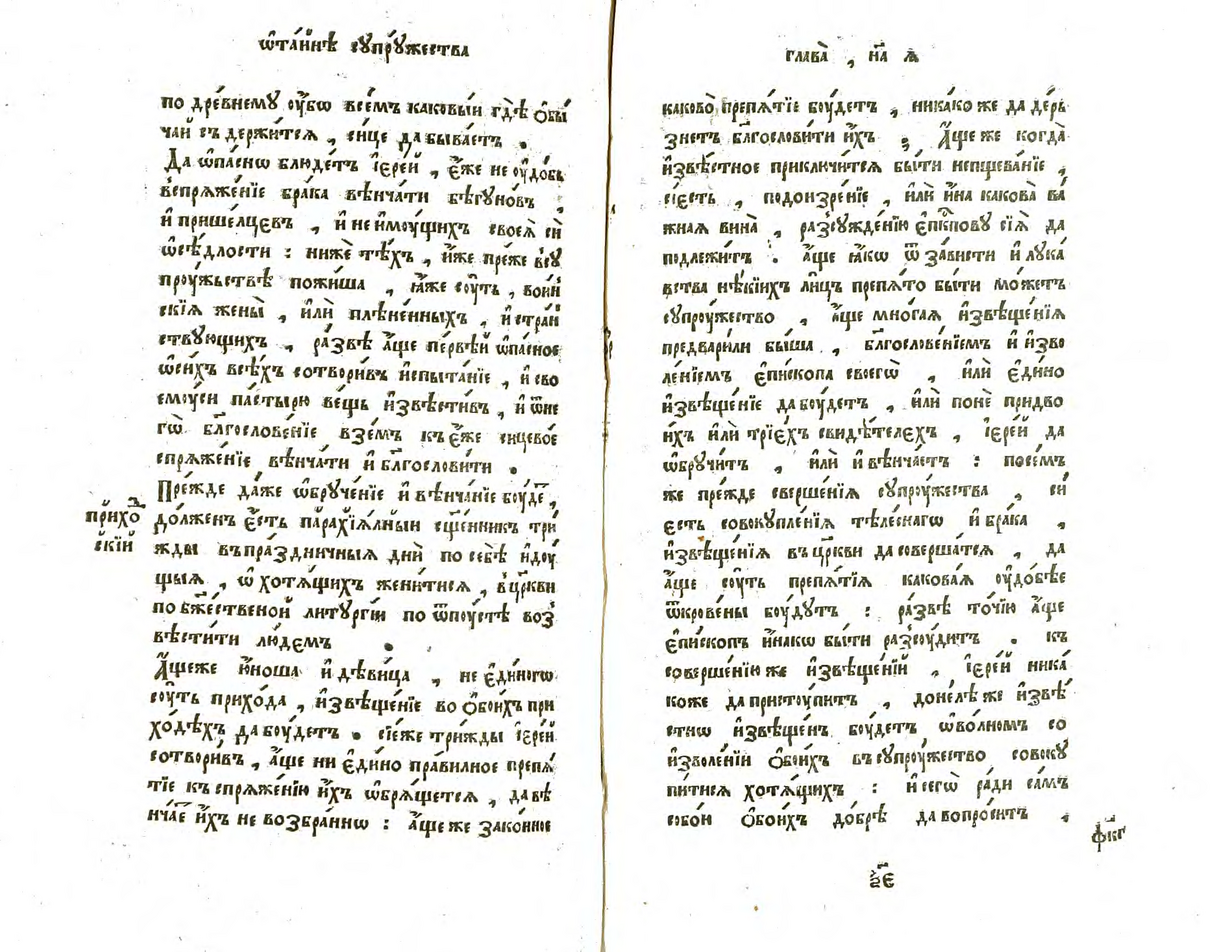 ѡ҆та́йнѣ сꙋпрꙋ́жества
по дре́внемꙋ ᲂу҆́бѡ всѣ́мъ каковы́й гдѣ̀ ѻ҆бы́
чай съдержи́тсѧ , си́це да быва́етъ .
Да ѡ҆па́снѡ блюде́тъ і҆ере́й , є҆́же не ᲂу҆до́бь
вспрѧже́нїе бра́ка вѣнча́ти бѣгꙋно́въ ,
и҆ прише́лцевъ , и҆ не и҆мᲂу́щихъ своеѧ̀ сѝ
ѡ҆сѣ́длости : нижѐ тѣ́хъ , и҆̀же пре́же всꙋ
прᲂу́жьствѣ пожи́ша , ꙗ҆́же сᲂу́ть , во́ин
скїѧ жены̀ , и҆лѝ плѣне́нныхъ , и҆ стра́н
ствꙋющихъ , ра́звѣ а҆́ще пе́рвѣй ѡ҆па́сное
ѡ҆си́хъ всѣ́хъ сотвори́въ и҆спыта́нїе , и҆ сво
емᲂу́си па́стырю ве́щь и҆звѣсти́въ , и҆ ѿне
гѡ̀ бл҃гослове́нїе взе́мъ къ є҆́же сицево́е
спрѧже́нїе вѣнча́ти и҆ бл҃гослови́ти .
Пре́жде да́же ѡ҆брꙋче́нїе и҆ вѣнча́нїе бᲂу́де ,
прихо
до́лженъ є҆́сть парахїѧ́лный сщ҃е́нникъ три́
скїй
жды въ пра́здничныѧ днѝ по себѣ̀ и҆дᲂу́
щыѧ , ѡ҆ хотѧ́щихъ жени́тисѧ , в цр҃кви
по бж҃е́ственой литꙋргі́и по ѿпᲂу́стѣ воз
вѣсти́ти лю́демъ .
А҆́щеже ю҆́ноша и҆ дѣви́ца , не є҆ди́ногѡ
сᲂу́ть прихо́да , и҆звѣще́нїе во ѻ҆бои́хъ при
хо́дѣхъ да бᲂу́детъ . сїе́же три́жды і҆ере́й
сотвори́въ , а҆́ще ни є҆ди́но пра́вилное препѧ́
тїе къ спрѧже́нїю и҆́хъ ѡ҆брѧ́щетсѧ , да вѣ
нча́е и҆́хъ не возбра́ннѡ : а҆́ще же зако́нное
глава̀ , на , а҃
каково̀ препѧ́тїе бᲂу́детъ , ника́ко же да де́рь
знетъ бл҃гослови́ти и҆́хъ , А҆́ще же когда̀
и҆звѣ́стное приключи́тсѧ бы́ти непщева́нїе ,
сіе́сть , подоизрѣ́нїе , и҆лѝ и҆́на какова̀ ва́
жнаѧ вина̀ , разсꙋжде́нїю є҆пкⷭ҇пову сїѧ̀ да
подлежи́тъ . а҆́ще ꙗ҆́кѡ ѿ за́висти и҆ лꙋка́
вства нѣ́кїихъ ли́цъ препѧ́то бы́ти мо́жетъ
сꙋпрᲂу́жество , а҆́ще мно́гаѧ и҆звѣще́нїѧ
предвари́ли бы́ша , бл҃гослове́нїемъ и҆ и҆зво
ле́нїемъ є҆пи́скопа своегѡ̀ , и҆лѝ є҆ди́но
и҆звѣще́нїе да бᲂу́детъ , и҆лѝ понѐ при дво
и́хъ и҆лѝ трїе́хъ свидѣ́телехъ , і҆ере́й да
ѡ҆брꙋчи́тъ , и҆лѝ и҆ вѣнча́етъ : посе́мъ
же пре́жде сверше́нїѧ сꙋпрᲂу́жества , си́
есть совокꙋпле́нїѧ тѣле́снагѡ и҆ бра́ка ,
и҆звѣще́нїѧ въ цр҃кви да соверша́тсѧ , да
а҆́ще сᲂу́ть препѧ́тїѧ какова́ѧ ᲂу҆до́бѣе
ѿкрове́ны бᲂу́дꙋтъ : ра́звѣ то́чїю а҆́ще
є҆пи́скопъ и҆́накѡ бы́ти разсᲂу́дитъ . къ
соверше́нїю же и҆звѣще́нїй , і҆ере́й ника́
коже да пристᲂу́питъ , до́нелѣ же и҆звѣ́
стнѡ и҆звѣще́нъ бᲂу́детъ ѡ҆во́лномъ со
и҆зволе́нїи ѻ҆бои́хъ въ сꙋпрᲂу́жество совокꙋ
пи́тисѧ хотѧ́щихъ : и҆ сегѡ̀ ра́ди са́мъ
собо́й ѻ҆бои́хъ до́брѣ да вопро́ситъ ,
фк҃г
ѕ҃є